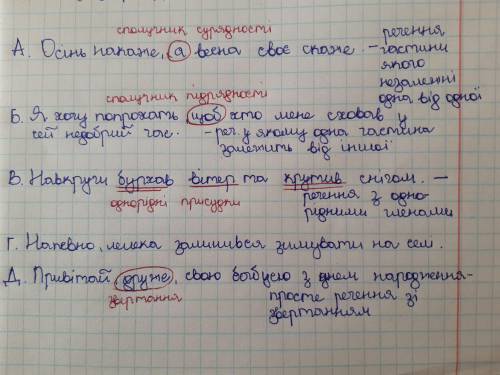 сполучник сурядності
А. Осінь накаже, а весна своє скаже. - речення
частини
якого
незалежні
одна від одної
сполучник підрядності
Б. Я хочу попрохать щоб хто мене сховав у
сей недобрий час. - реч. у якому одна частина
залежить від іншої
В. Навкруги бурхав вітер та крутив снігом. -
однорідні присудки
речення з одно-
рідними членами
Г. Напевно, лелека залишився зимувати на сем.
Д. Привітай друже, свою бабусю з днем народження-
звертання
просте речення зі
звертанням